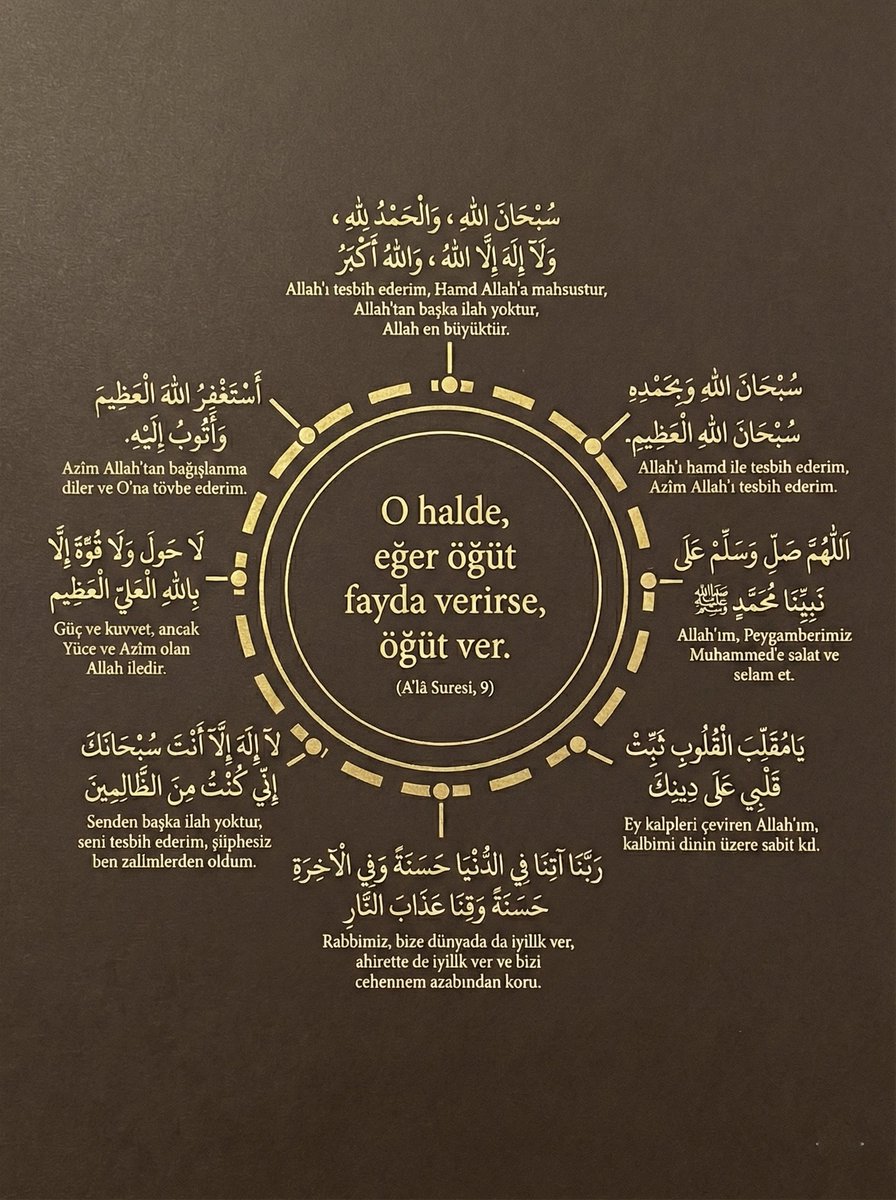 سُبْحَانَ اللهِ ، وَالْحَمْدُ لِلهِ ،
وَلَآ إِلَهَ إِلَّا اللهُ ، وَاللهُ أَكْبَرُ
Allah'ı tesbih ederim, Hamd Allah'a mahsustur,
Allah'tan başka ilah yoktur,
Allah en büyüktür.
سُبْحَانَ اللهِ وَبِحَمْدِهِ
سُبْحَانَ اللهِ الْعَظِيمِ.
Allah'ı hamd ile tesbih ederim,
Azîm Allah'ı tesbih ederim.
اَللّٰهُمَّ صَلِّ وَسَلِّمْ عَلَى
نَبِيِّنَا مُحَمَّدٍ ﷺ
Allah'ım, Peygamberimiz
Muhammed'e salat ve
selam et.
يَامُقَلِّبَ الْقُلُوبِ ثَبِّتْ
قَلْبِي عَلَى دِينِكَ
Ey kalpleri çeviren Allah'ım,
kalbimi dinin üzere sabit kd.
رَبَّنَا آتِنَا فِي الدُّنْيَا حَسَنَةً وَفِي الْآخِرَةِ
حَسَنَةً وَقِنَا عَذَابَ النَّارِ
Rabbimiz, bize dünyada da iyillk ver,
ahirette de iyillk ver ve bizi
cehennem azabından koru.
لَآ إِلَهَ إِلَّآ أَنْتَ سُبْحَانَكَ
إِنِّي كُنْتُ مِنَ الظَّالِمِينَ
Senden başka ilah yoktur,
seni tesbih ederim, şiiphesiz
ben zalimlerden oldum.
لَا حَولَ وَلَا قُوَّةَ إِلَّا
بِاللهِ الْعَلِيّ الْعَظِيم
Güç ve kuvvet, ancak
Yüce ve Azîm olan
Allah iledir.
أَسْتَغْفِرُ اللهَ الْعَظِيمَ
وَأَتُوبُ إِلَيْهِ.
Azîm Allah'tan bağışlanma
diler ve O'na tövbe ederim.
O halde,
eğer öğüt
fayda verirse,
öğüt ver.
(A'lâ Suresi, 9)